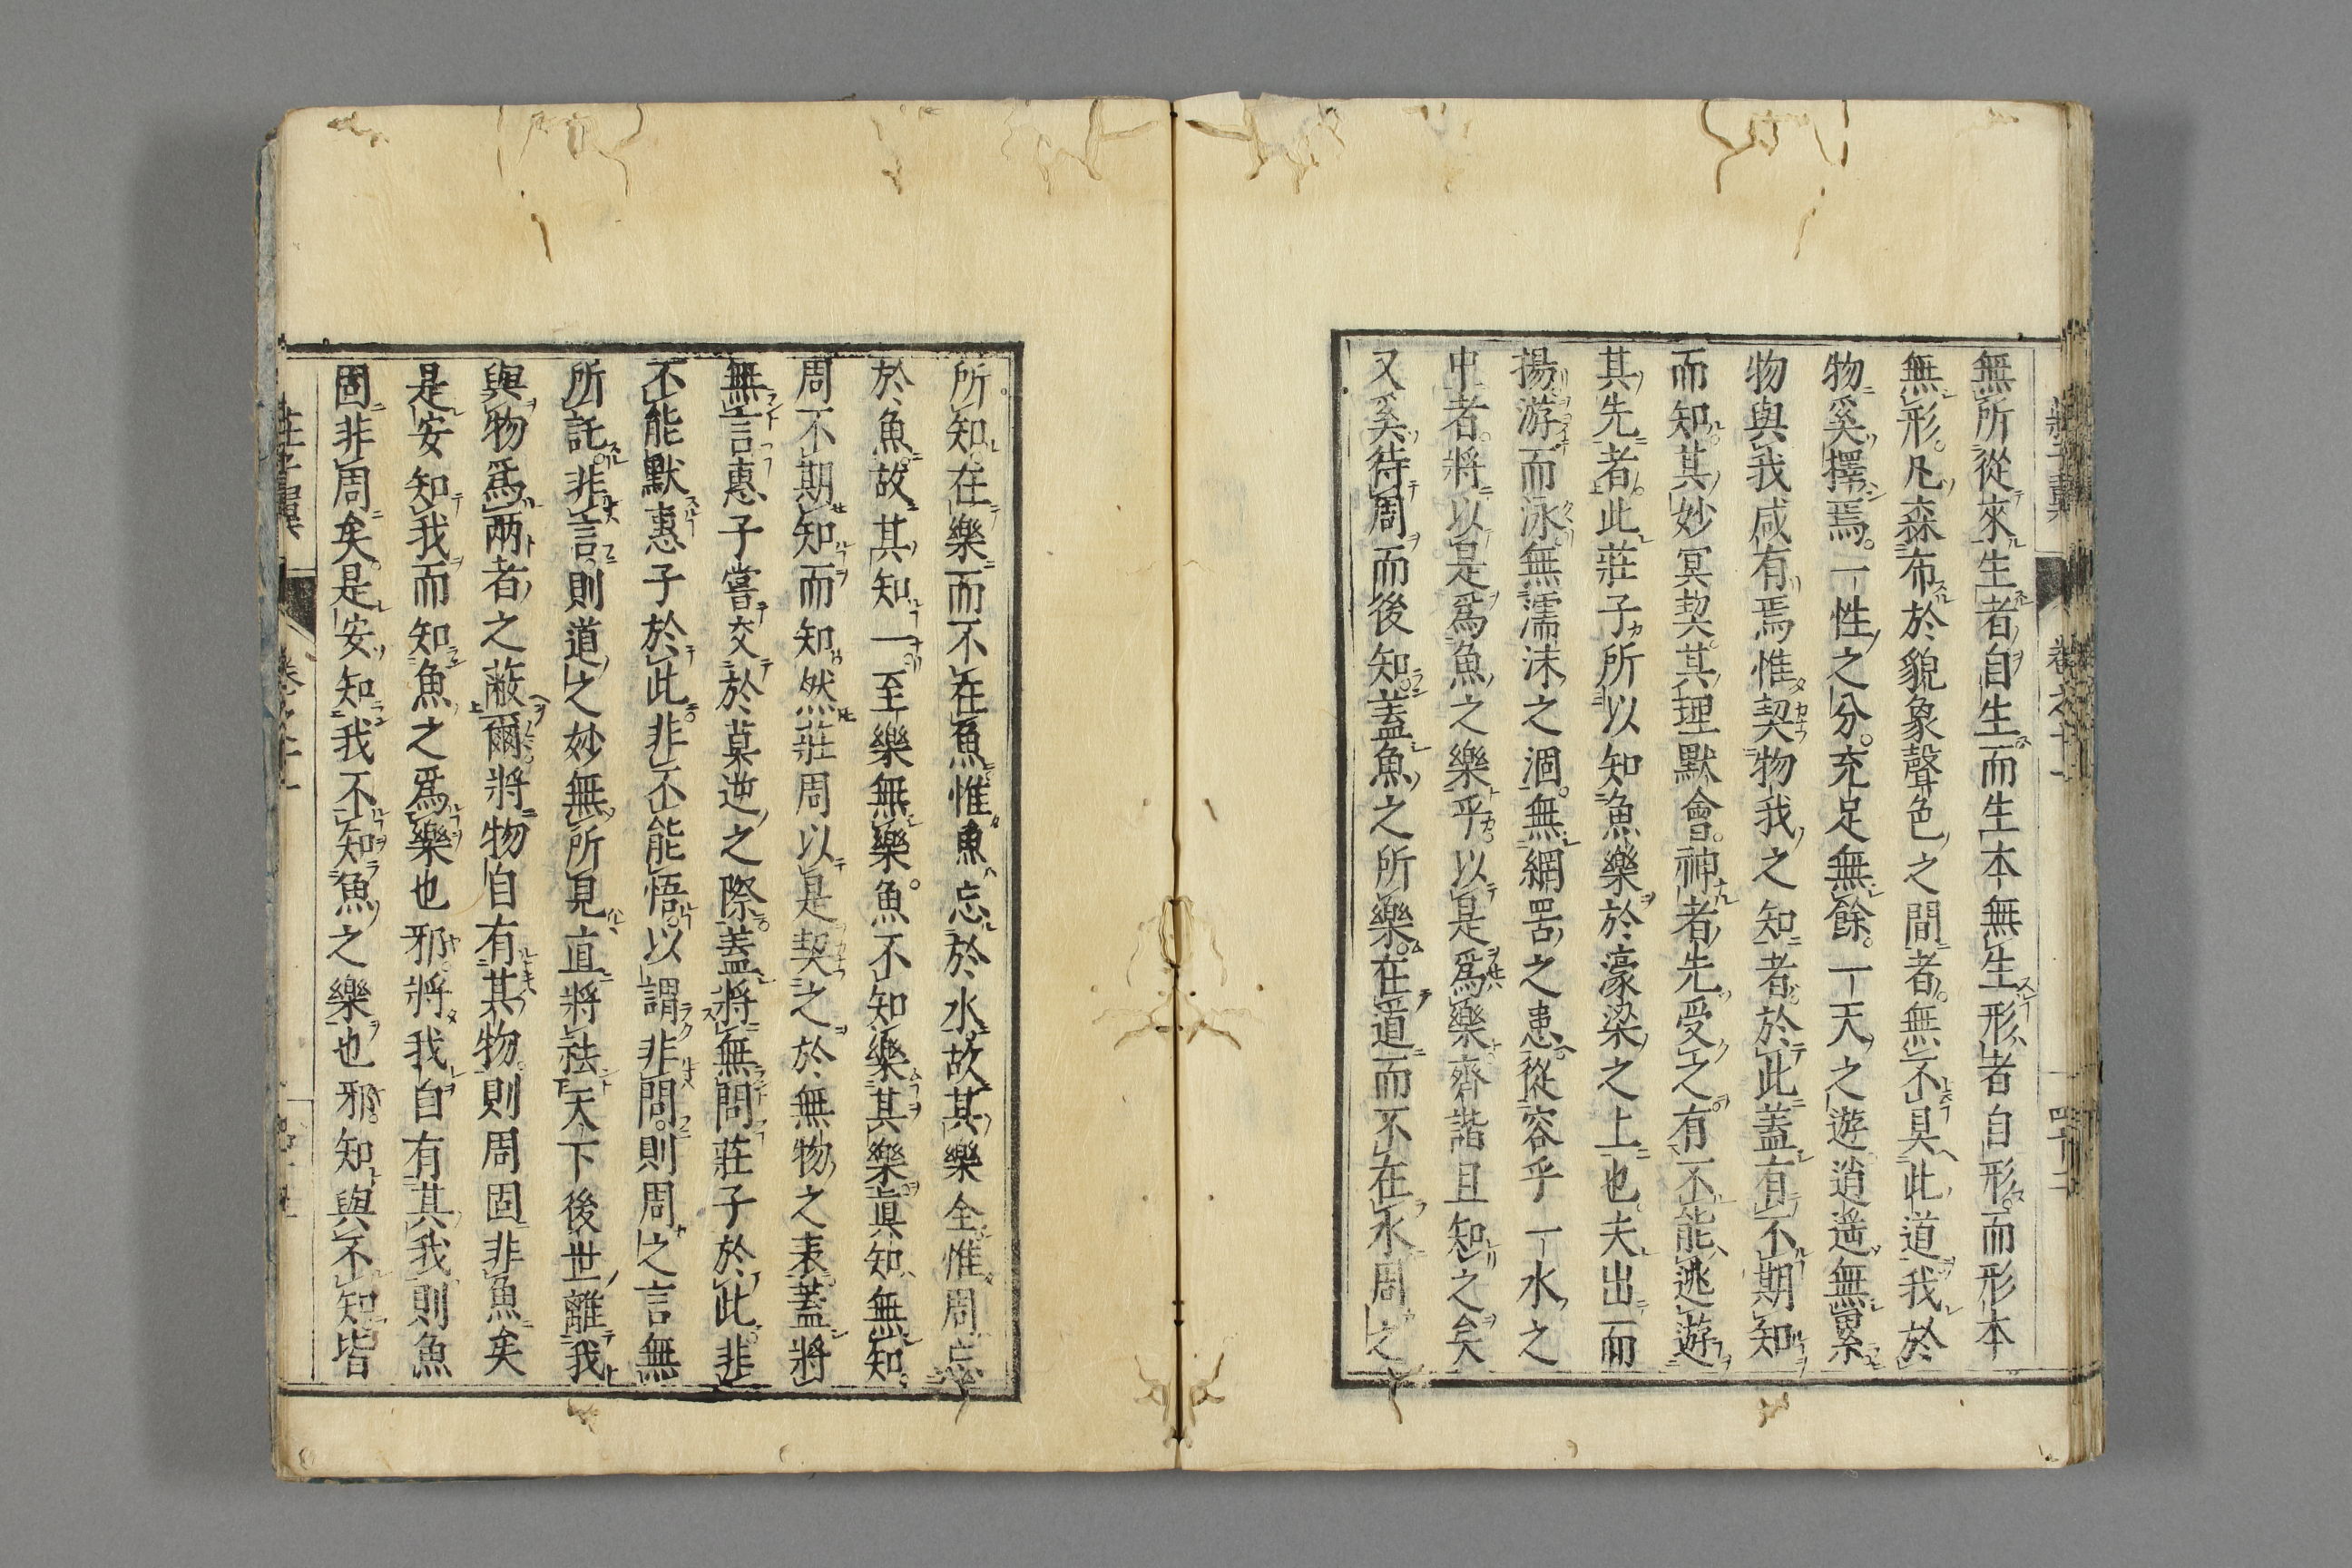 無所從來生者自生生而生本無生形者自形而形本
無形凡森布於貌象聲色之間者無不具此道我於
物奚擇焉一性之分充足無餘一天之遊逍遥無累
物與我咸有焉惟契物我之知者於此蓋有不期知
而知其妙冥契其理默會神者先受之有不能逃遊
其先者此莊子所以知魚樂於濠梁之上也夫出而
揚游而泳無濡沫之涸無網罟之患從容乎一水之
中者將以是爲魚之樂乎以是爲樂齊諧且知之矣
又奚待周而後知蓋魚之所樂在道而不在水周之
所知在樂而不在魚惟魚忘於水故其樂全惟周忘
於魚故其知一至樂無樂魚不知樂其樂眞知無知
周不期知而知然莊周以是契之於無物之表蓋將
無言惠子嘗交於莫逆之際蓋將無問莊子於此非
不能默惠子於此非不能悟以謂非問則周之言無
所託非言則道之妙無所見直將祛天下後世離我
與物爲兩者之蔽爾將物自有其物則周固非魚矣
是安知我而知魚之爲樂也邪將我自有其我則魚
固非周矣是安知我不知魚之樂也邪知與不知皆